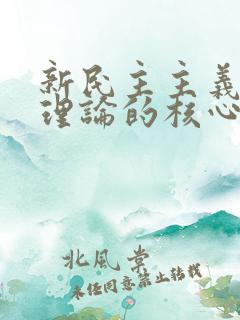 新民主主義
理論的核心
北風掌
未经同意禁止转载